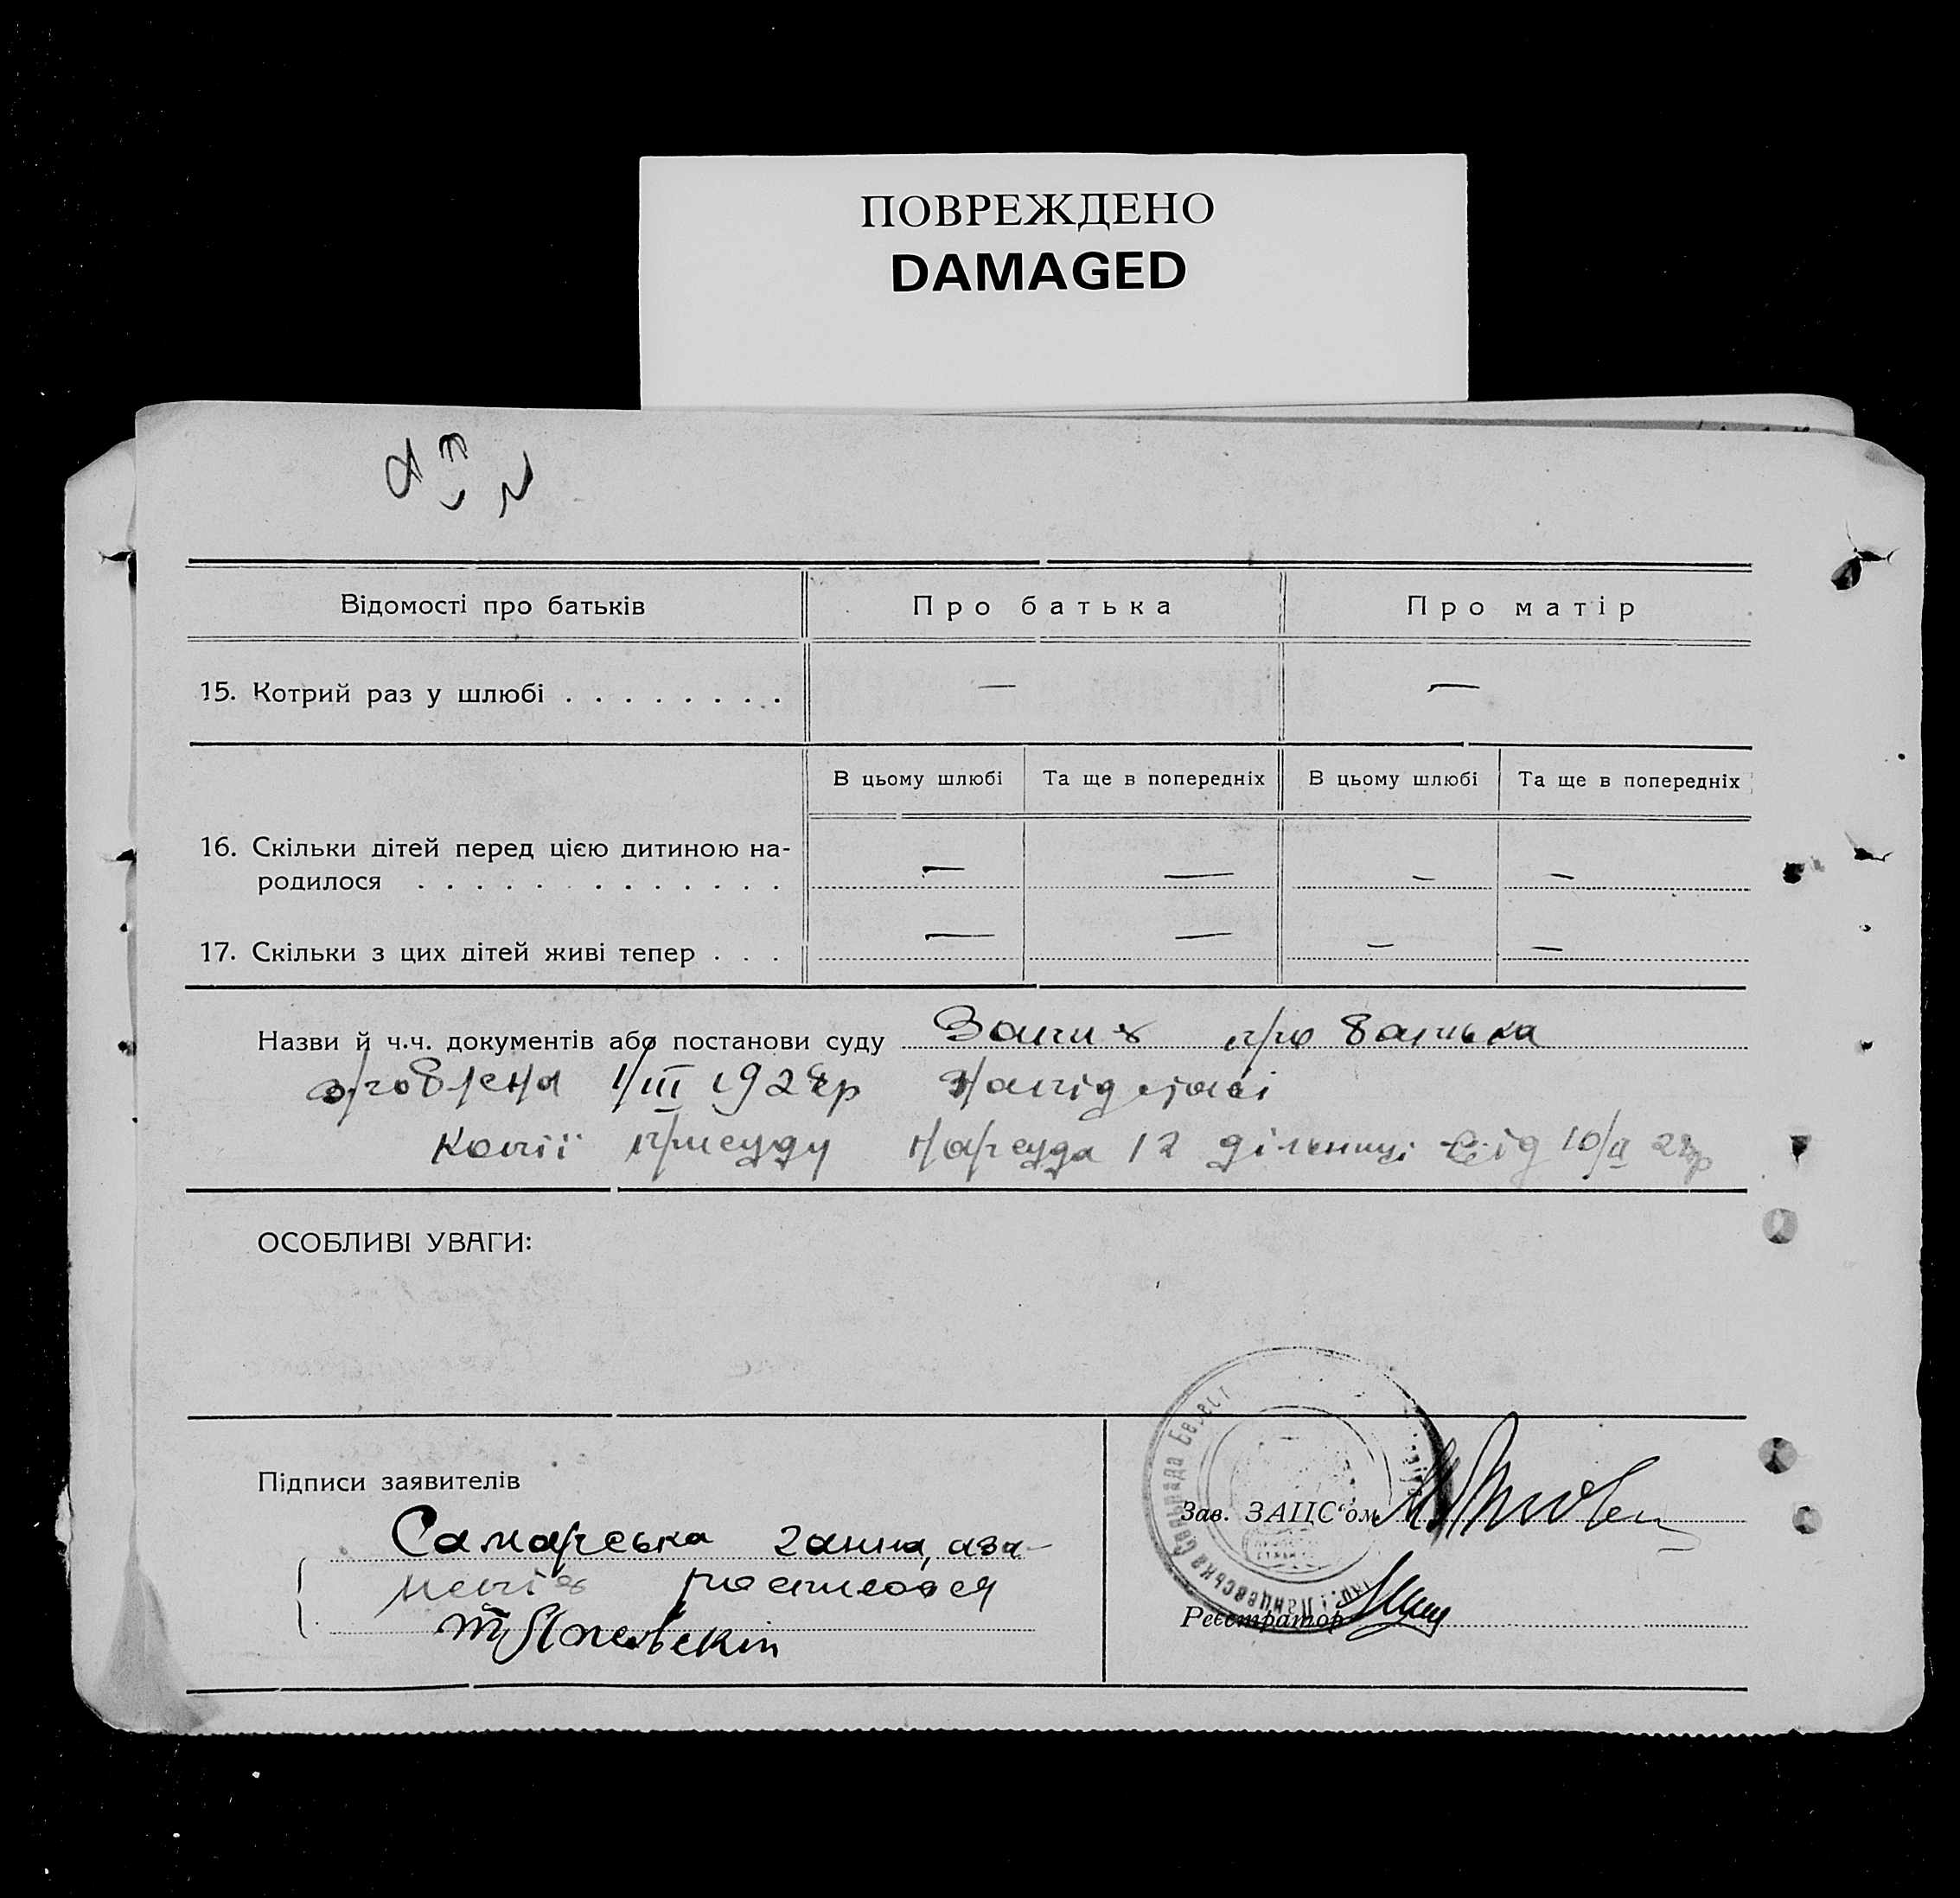 ПОВРЕЖДЕНО
DAMAGED
Відомості про батьків
Про батька
Про матір
15. Котрий раз у шлюбі . . . . . . . .
—
—
В цьому шлюбі
Та ще в попередніх
В цьому шлюбі
Та ще в попередніх
16. Скільки дітей перед цією дитиною на-
родилося . . . . . . . . . . . . .
—
—
—
—
17. Скільки з цих дітей живі тепер . . .
—
—
—
—
Назви й ч.ч. документів або постанови суду Запис про батька
зроблена 1/III 1928р на підставі
копії присуду Нарсуда 12 дільниці від 10/II 28р
ОСОБЛИВІ УВАГИ:
Підписи заявителів
Самарська Ганна, а за
розписався
Зав. ЗАЦС'ом
Реєстратор